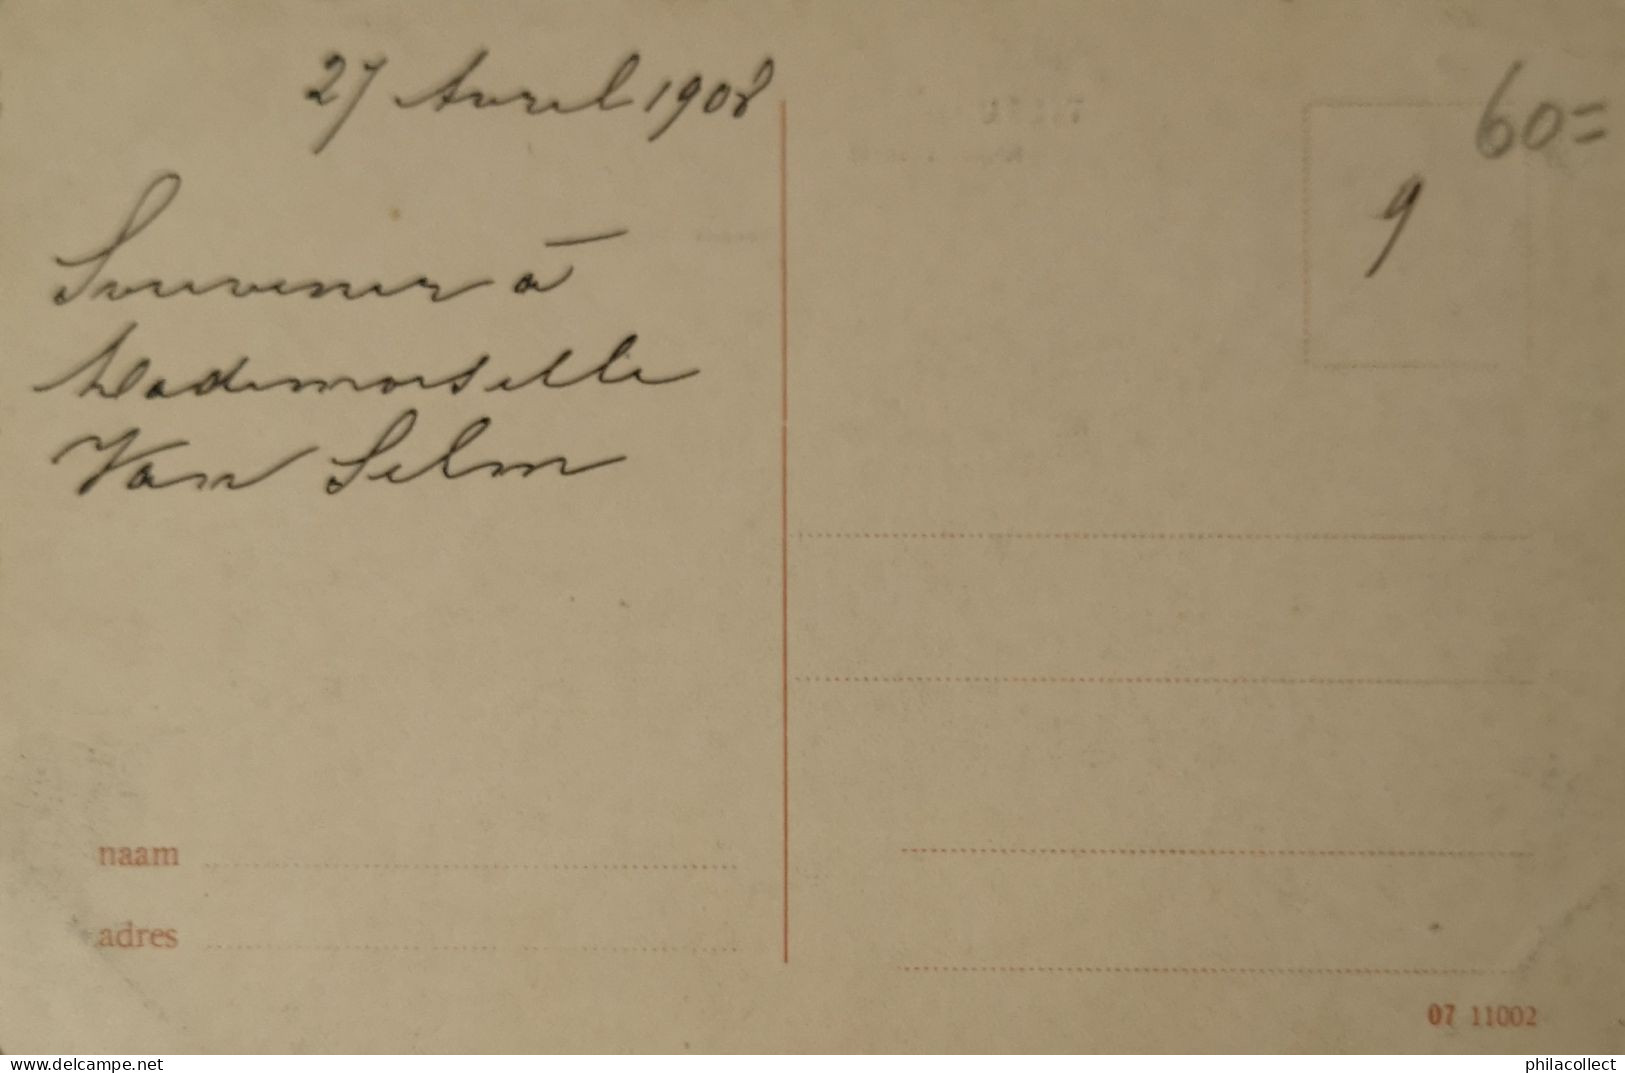 27 Avril 1908
Souvenir à
Mademoiselle
Van Selm
60=
9
naam
adres
07 11002
delcampe.net
philacollect